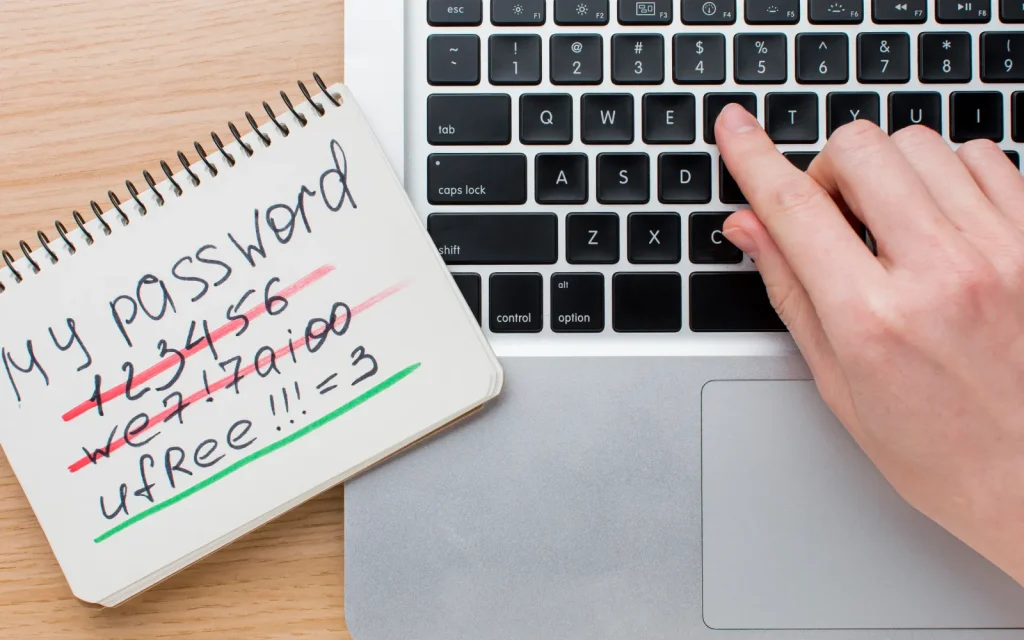 My password
123456
we7!7aioo
ufRee!!!=3
esc F1 F2 F3 F4 F5 F6 F7 F8
~ ` ! 1 @ 2 # 3 $ 4 % 5 ^ 6 & 7 * 8 ( 9
tab Q W E T Y U I
caps lock A S D
shift Z X C
control alt option